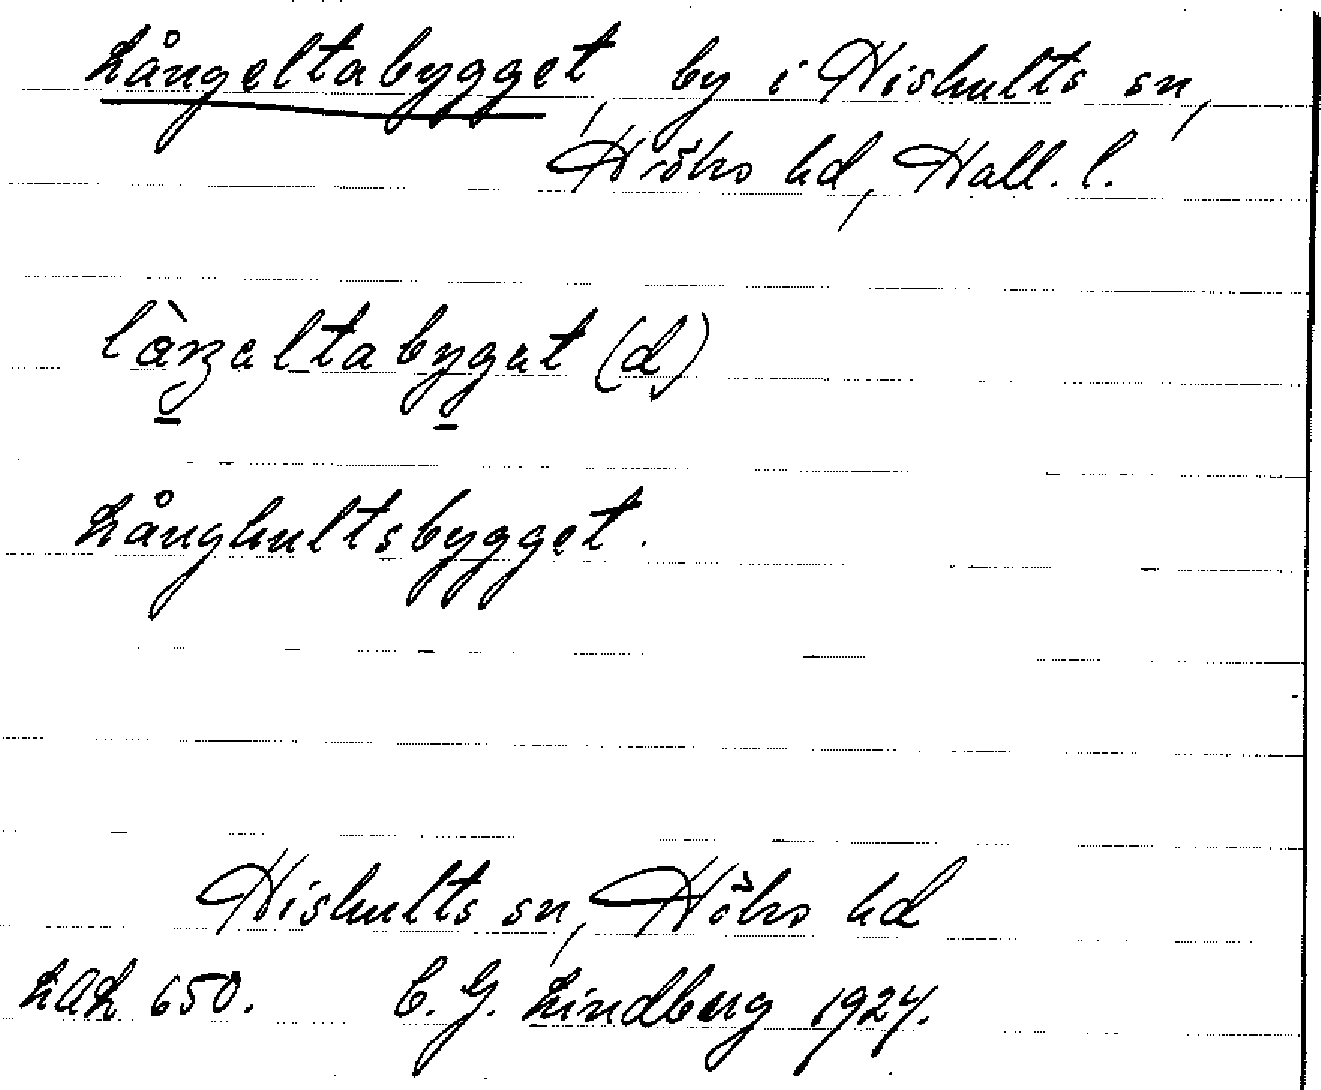 Långeltabygget, by i Hishults sn,
Höks hd, Hall. l.
(d)
Långhultsbygget.
Hishults sn, Höks hd
LAL 650. C. G. Lindberg 1924.